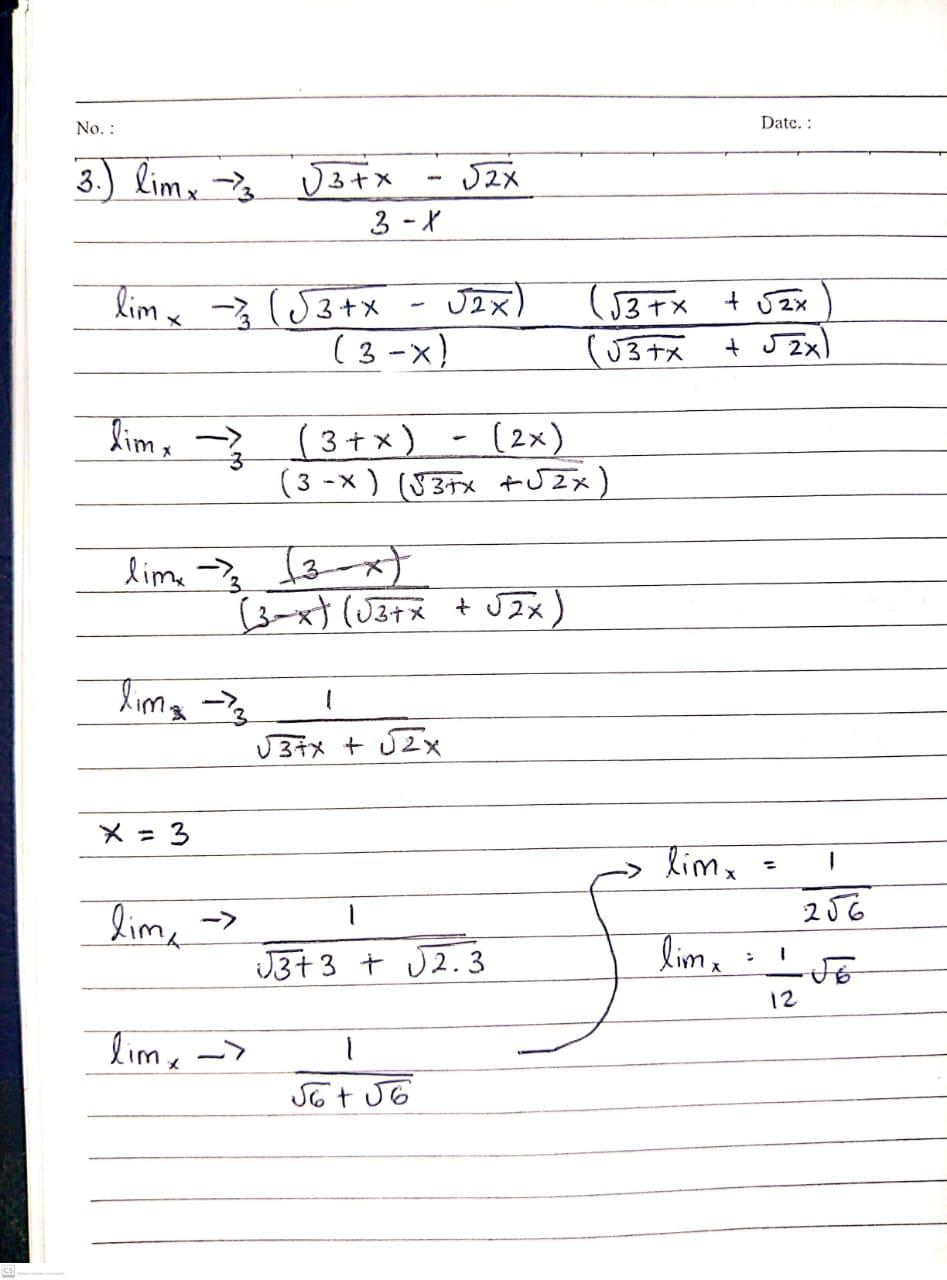 No. :
Date. :
3.) lim x → 3 √3+x - √2x
3 - x
lim x → 3 (√3+x - √2x) (√3+x + √2x)
(3 - x) (√3+x + √2x)
lim x → 3 (3+x) - (2x)
(3-x) (√3+x + √2x)
lim x → 3 (3-x)
(3-x) (√3+x + √2x)
lim x → 3 1
√3+x + √2x
x = 3
lim x → 1
√3+3 + √2.3
lim x → 1
√6 + √6
→ lim x = 1
2√6
lim x = 1 √6
12
CS